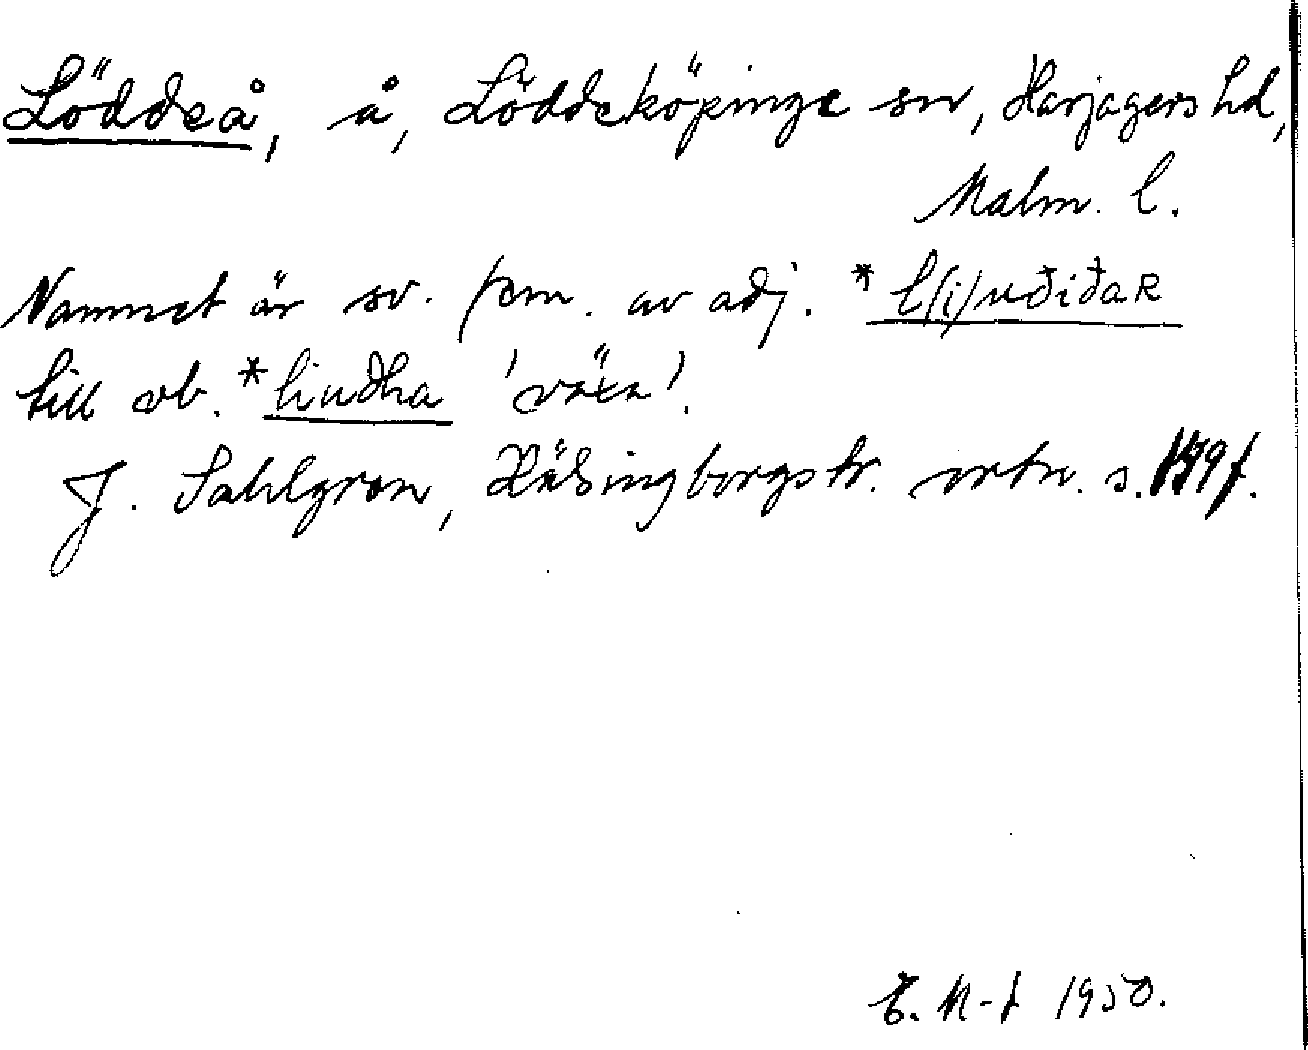 Löddeå, å, Löddeköpinge sn, Harjagers hd,
Malm. l.
Namnet är sv. fem. av adj. *l(i)uðiðaR
till vb. *liudha 'växa'.
J. Sahlgren, Hälsingborgstr. ortn. s. f.
E. N-t 1950.